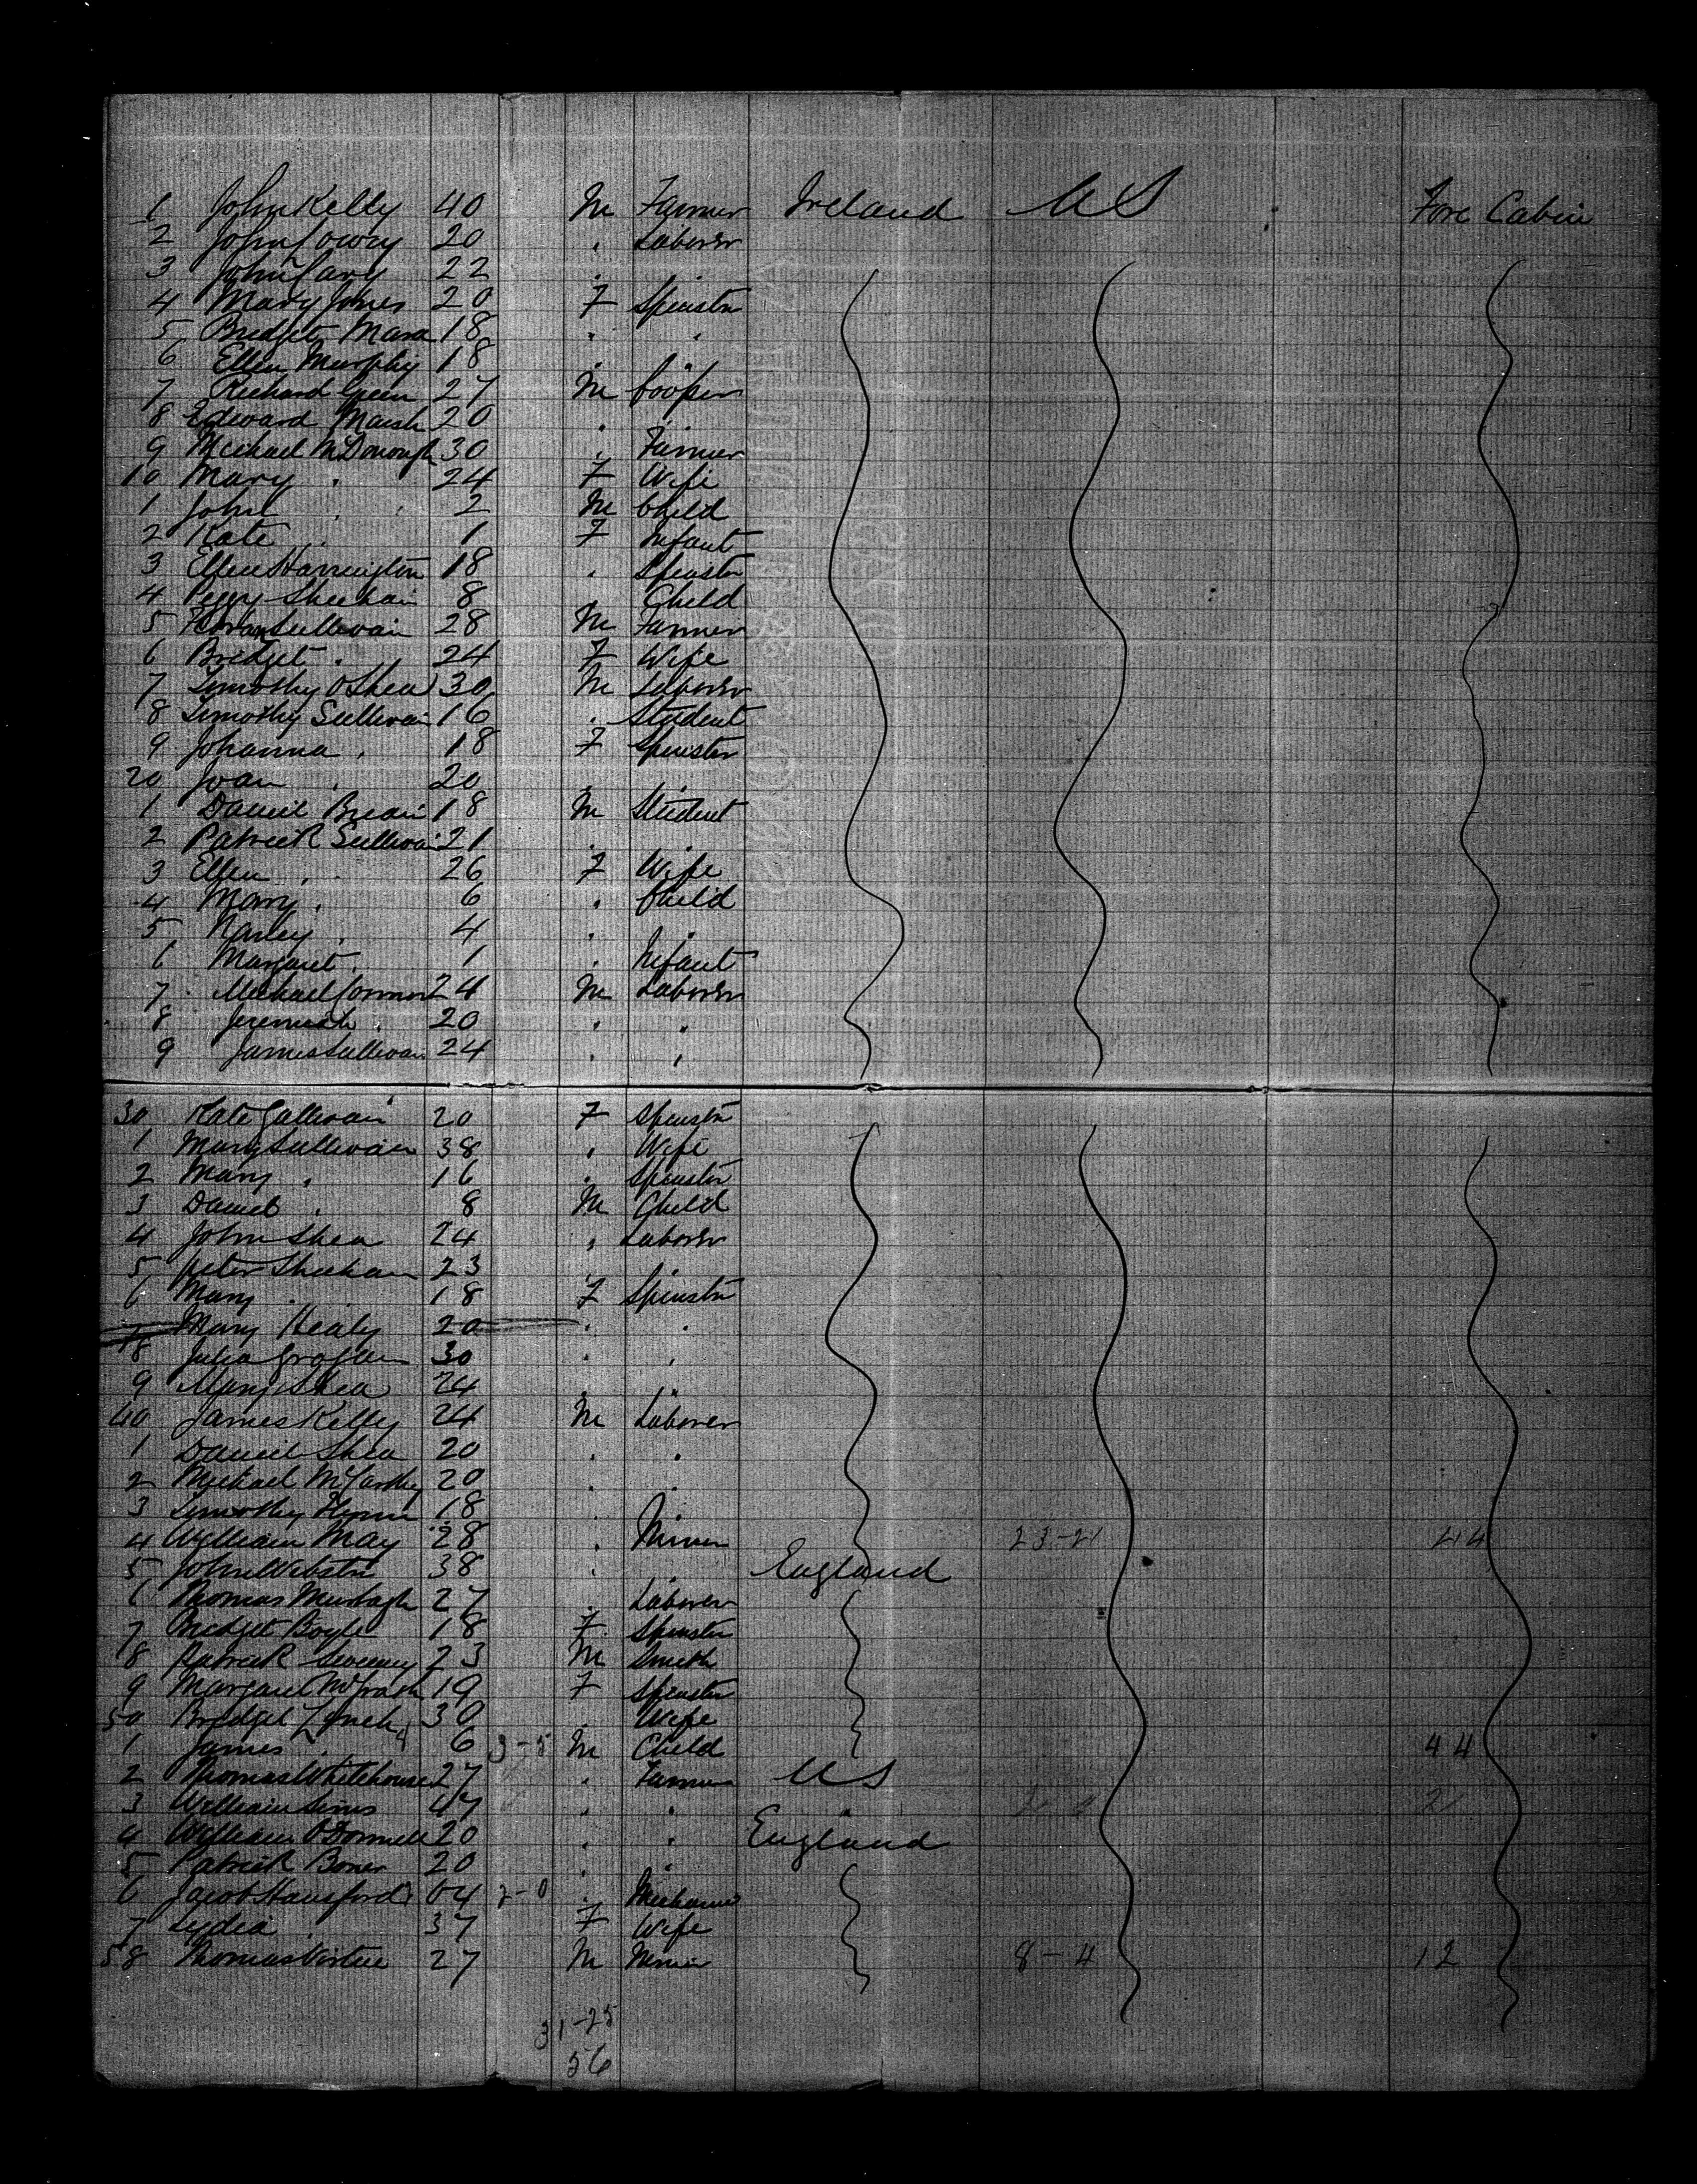 1 John Kelly 40 M Farmer Ireland US Fore Cabin
2 John Lowry 20 . Laborer
3 John Cary 22 . .
4 Mary Jones 20 F Spinster
5 Bridget Mara 18 . .
6 Ellen Murphy 18 . .
7 Richard Green 27 M Cooper
8 Edward Marsh 20 . .
9 Michael McDonough 30 . Farmer
10 Mary . 24 F Wife
1 John . . 2 M Child
2 Kate . 1 F Infant
3 Ellen Harrington 18 . Spinster
4 Peggy Sheehan 8 . Child
5 Sullivan 28 M Farmer
6 Bridget . 24 F Wife
7 Timothy OShea 30 M Laborer
8 Timothy Sullivan 16 . Student
9 Johanna . 18 F Spinster
20 Joan . 20 . .
1 Daniel 18 M Student
2 Patrick Sullivan 21 . .
3 Ellen . 26 F Wife
4 Mary . 6 . Child
5 4 . .
6 Margaret . 1 . Infant
7 Michael Connor 24 M Laborer
8 Jeremiah . 20 . .
9 James Sullivan 24 . .
30 Kate Sullivan 20 F Spinster
1 Mary Sullivan 38 . Wife
2 Mary . 16 . Spinster
3 Daniel . 8 M Child
4 John Shea 24 . Laborer
5 Peter Sheehan 23
6 Mary . 18 F Spinster
7 Mary Healy 20 . .
8 Julia 30 . .
9 Mary Shea 24 .
40 James Kelly 24 M Laborer
1 Daniel Shea 20 . .
2 Michael McCarthy 20 . .
3 Timothy Flynn 18 .
4 William May 28 . Miner 23-21 44
5 John Webster 38 . . England
6 Thomas Murtagh 27 . Laborer
7 Bridget Boyle 18 F Spinster
8 Patrick Sweeney 23 M Smith
9 Margaret McGrath 19 F Spinster
50 Bridget Lynch 30 . Wife
1 James . 6 3-5 M Child 44
2 Thomas Whitehouse 27 . Farmer US
3 William Sims 47 . . . 2
4 William ODonnell 20 . . England
5 Patrick Boner 20 . .
6 Jacob Hansford 64 2-0 . Mechanic
7 Lydia . 37 F Wife
58 Thomas Virtue 27 M Miner 8-4 12
31-25
56